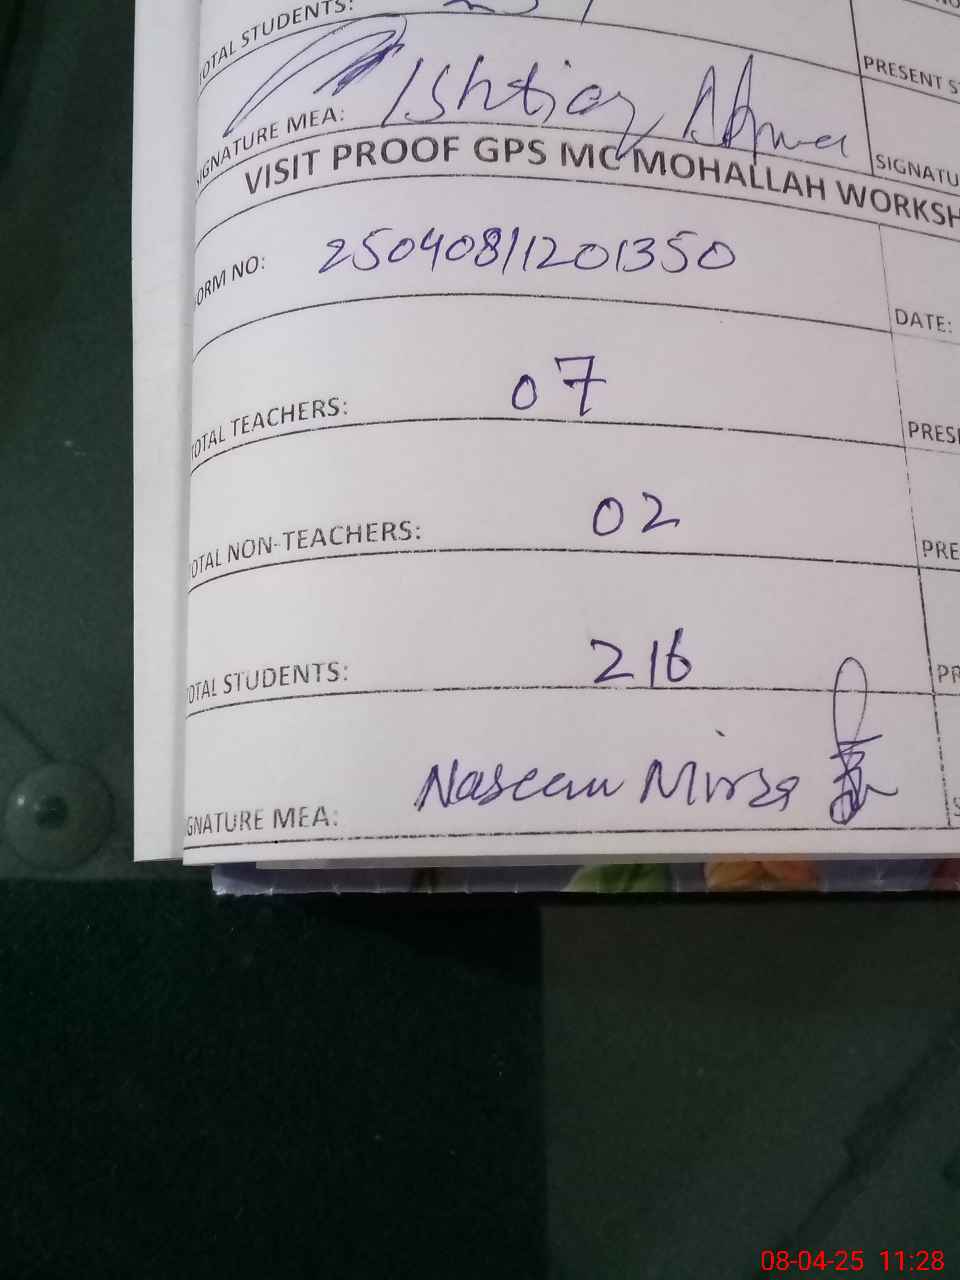 TOTAL STUDENTS:
PRESENT S
SIGNATURE MEA: Ishtiaq Ahmed
SIGNATU
VISIT PROOF GPS MC MOHALLAH WORKSH
ORM NO: 25040811201350
DATE:
TOTAL TEACHERS: 07
PRESE
OTAL NON-TEACHERS: 02
PRE
OTAL STUDENTS: 216
PR
GNATURE MEA: Naseem Mirza
S
08-04-25 11:28